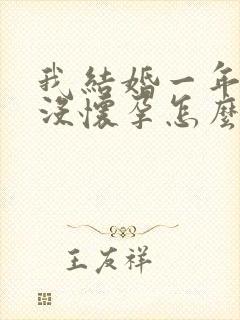 我結婚一年
沒懷孕怎麼
王友祥